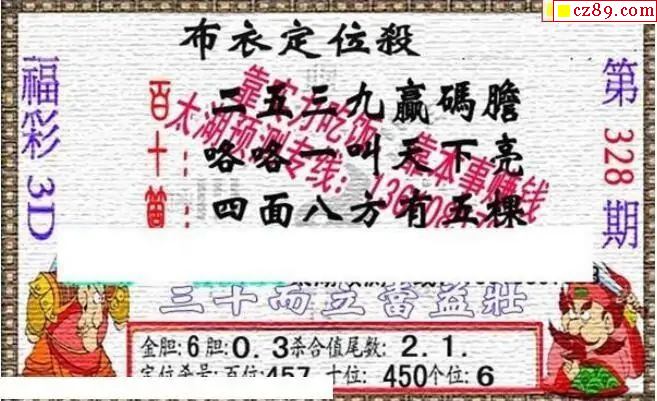 cz89.com
布衣定位殺
福彩3D
第328期
百:二五三九贏碼膽
十:咯咯一叫天下亮
四面八方有五棵
靠实力吃饭
太湖预测专线:
靠本事赚钱
三十而立當益壯
金胆:6胆:0.3杀合值尾数:2.1.
定位杀号:百位:457 十位:450个位:6